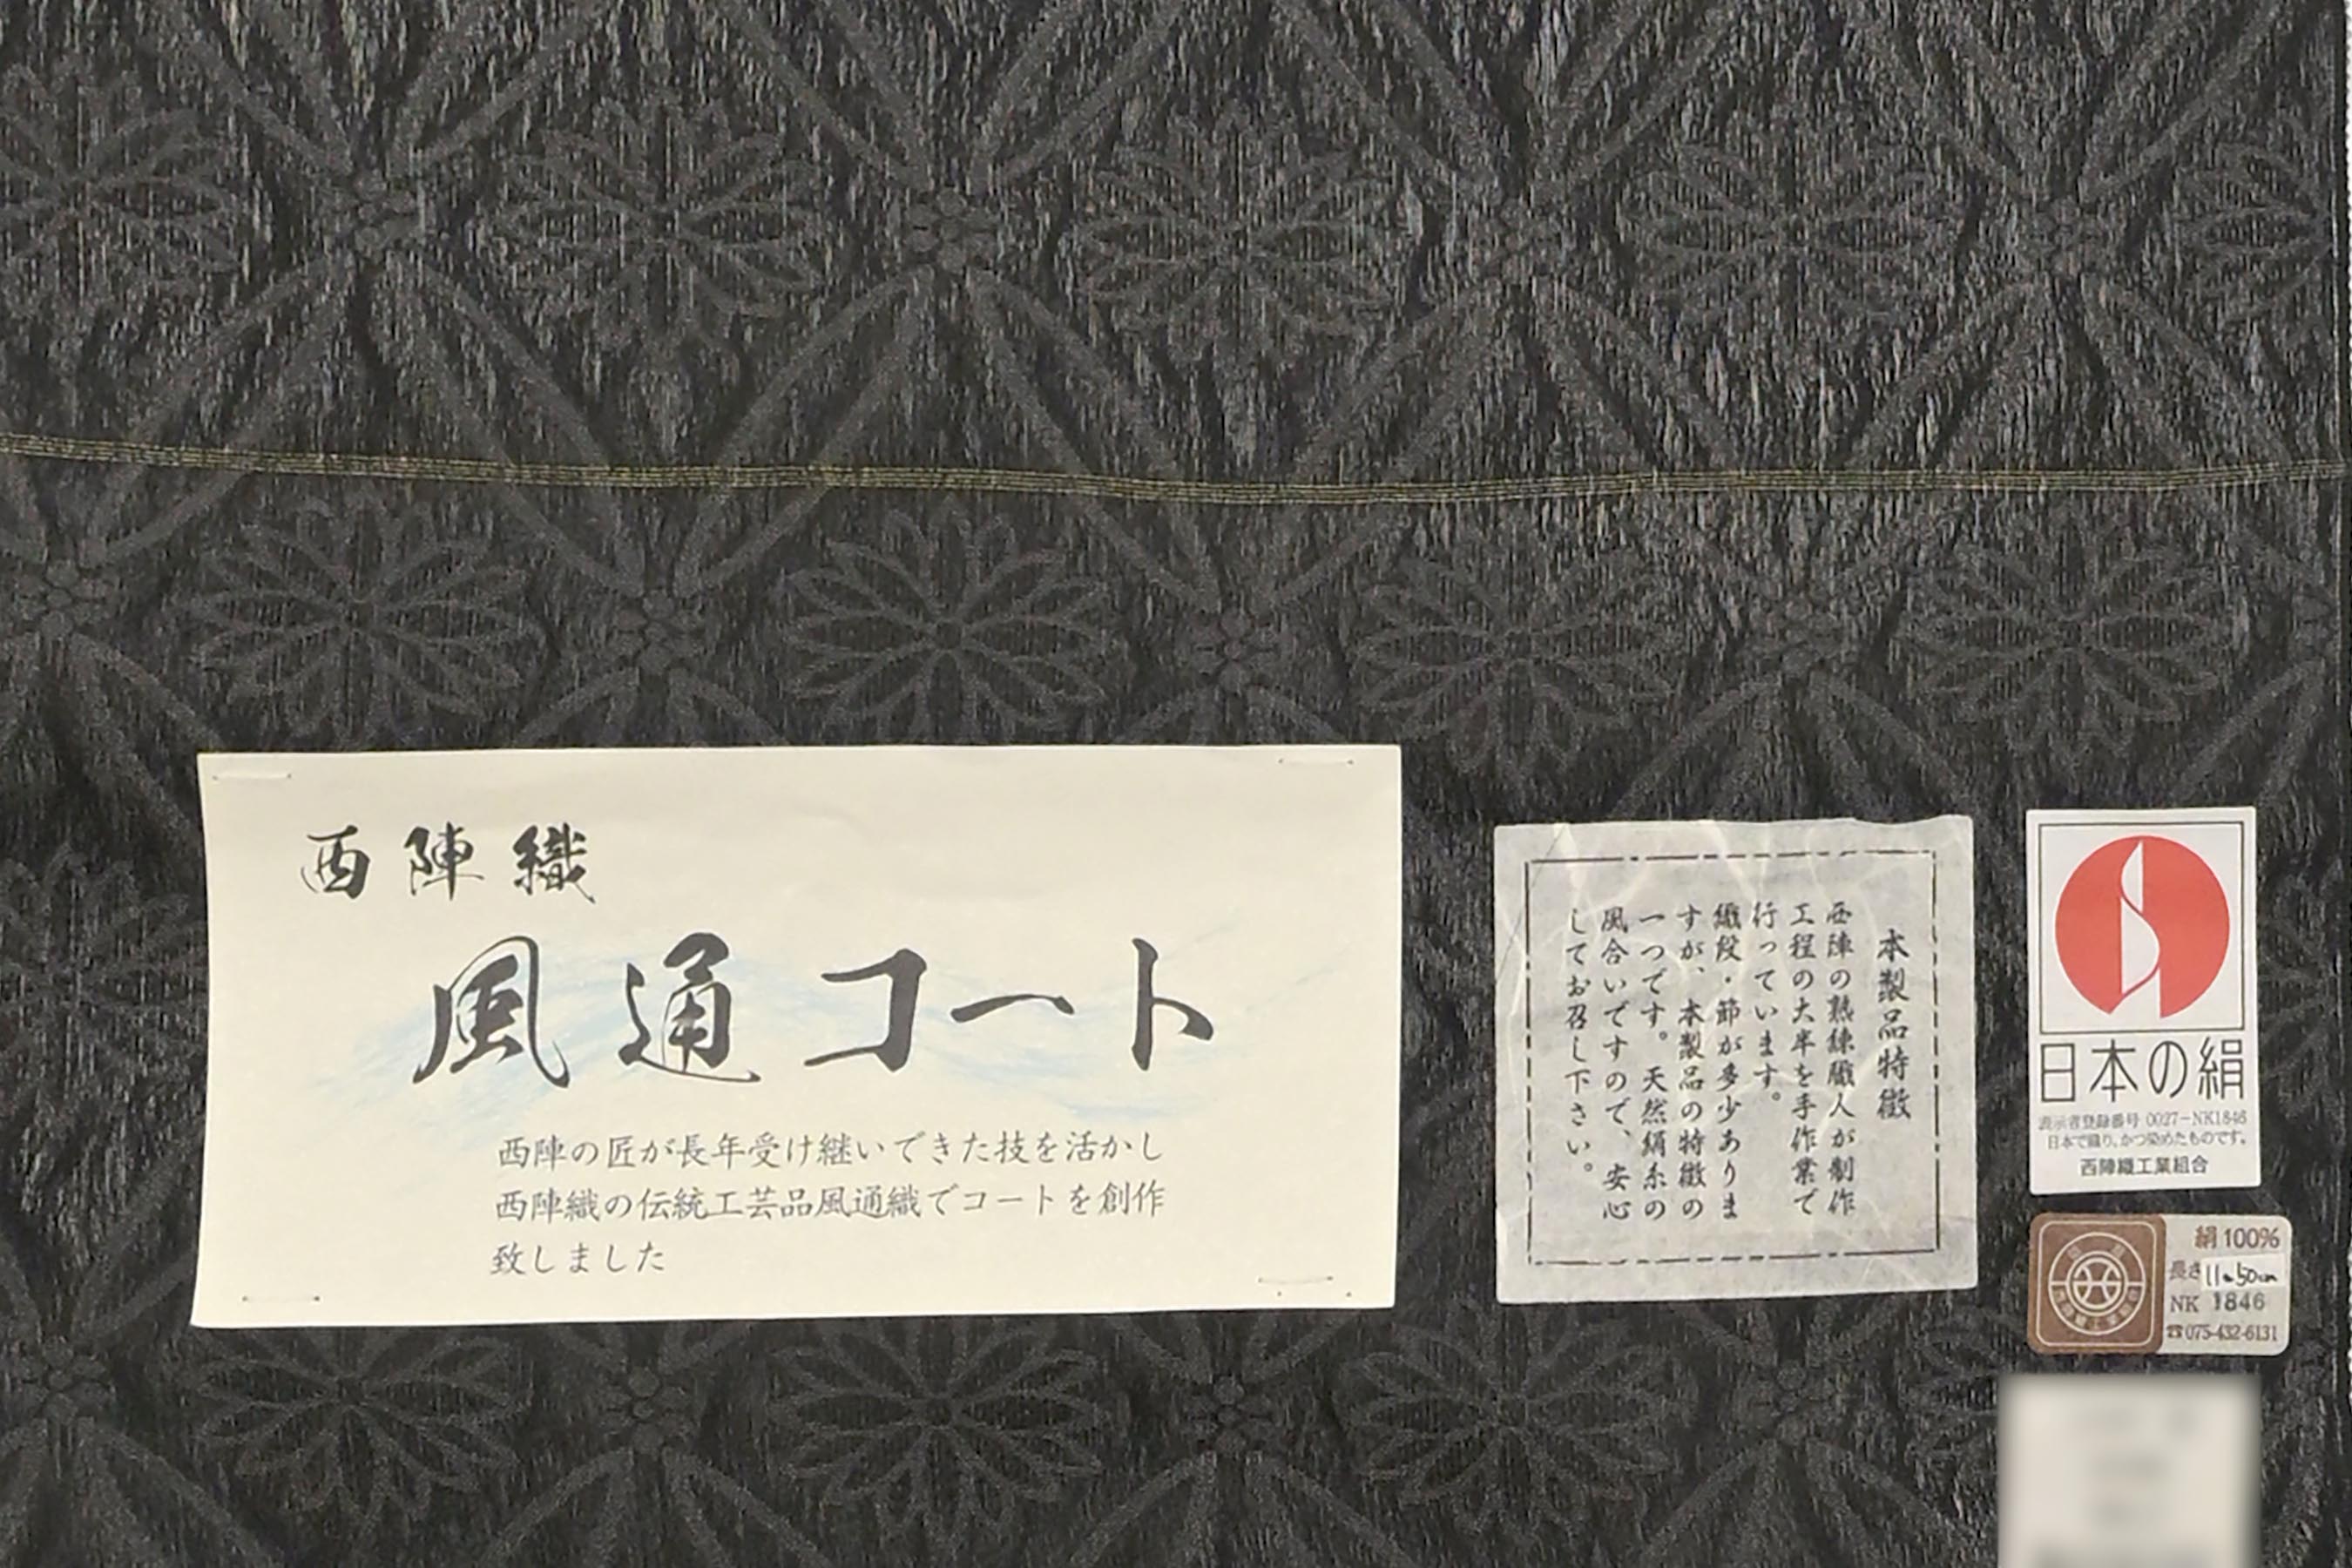 西陣織
風通コート
西陣の匠が長年受け継いできた技を活かし
西陣織の伝統工芸品風通織でコートを創作
致しました
本製品特徴
西陣の熟練職人が制作
工程の大半を手作業で
行っています。
織段・節が多少ありま
すが、本製品の特徴の
一つです。天然絹糸の
風合いですので、安心
してお召し下さい。
日本の絹
表示者登録番号 0027-NK1846
日本で織り、かつ染めたものです。
西陣織工業組合
絹100%
長さ 11m50cm
NK 1846
☎075-432-6131